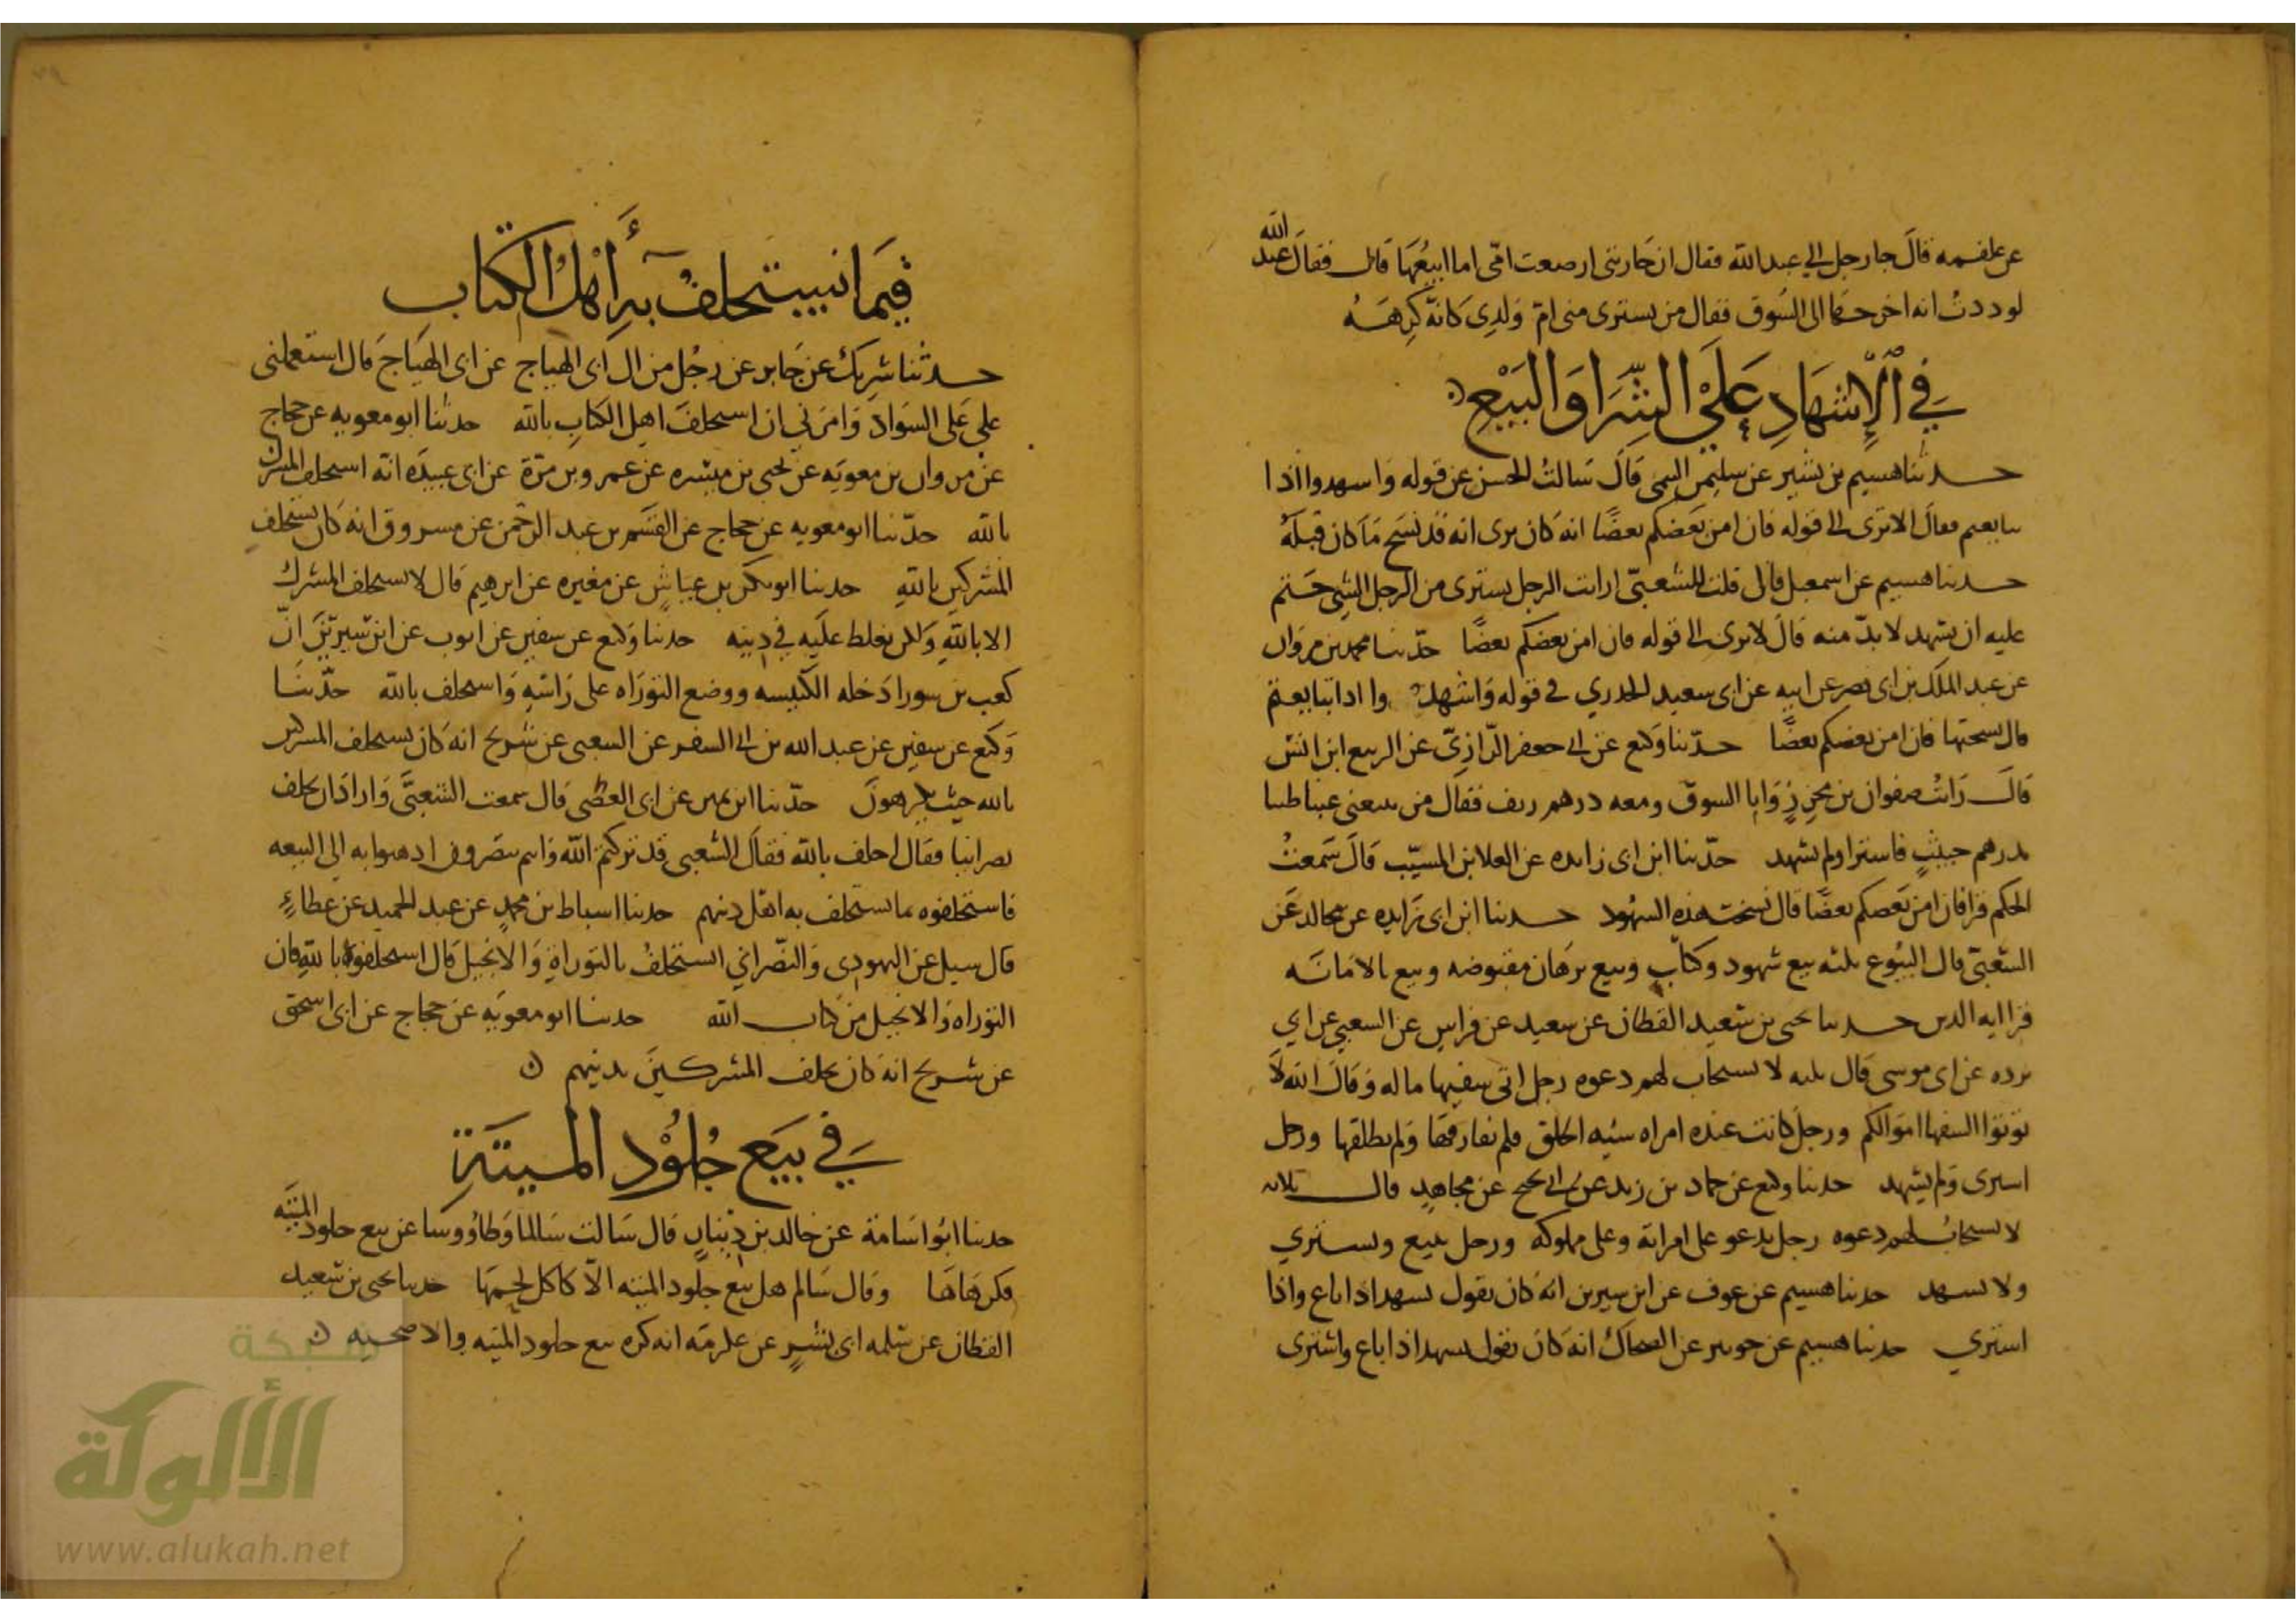 عن علقمه قال جا رجل الي عبد الله فقال ان جاريتي ارضعت ابني اما ابيعها قال فقال عبد الله
لوددت انه اخرجها الى السوق فقال من يشتري مني ام ولدي كانه كرهه
في الإشهاد على الشرا والبيع
حدثنا هشيم بن بشير عن سليمن التيمي قال سالت الحسن عن قوله واشهدوا اذا
تبايعتم فقال الا ترى الى قوله فان امن بعضكم بعضا انه كان يرى انه قد نسخ ما كان قبله
حدثنا هشيم عن اسمعيل قال قلت للشعبي ارايت الرجل يشتري من الرجل الشي حتم
عليه ان يشهد لا بد منه قال الا ترى الى قوله فان امن بعضكم بعضا حدثنا محمد بن مروان
عن عبد الملك بن ابي نصر عن ابيه عن ابي سعيد الخدري في قوله واشهدوا اذا تبايعتم
قال نسختها فان امن بعضكم بعضا حدثنا وكيع عن ابي جعفر الرازي عن الربيع ابن انس
قال رايت صفوان بن محرز واتا السوق ومعه درهم زيف فقال من يبيعني عنبا طيبا
بدرهم خبيث فاشترا ولم يشهد حدثنا ابن ابي زايده عن العلا بن المسيب قال سمعت
الحكم قرا فان امن بعضكم بعضا قال نسخت هذه الشهود حدثنا ابن ابي زايده عن مجالد عن
الشعبي قال البيوع ثلثه بيع شهود وكتاب وبيع برهان مقبوضه وبيع بالامانه
قرا ايه الدين حدثنا يحيى بن سعيد القطان عن سعيد عن فراس عن الشعبي عن ابي
برده عن ابي موسى قال ثلثه لا يستجاب لهم دعوه رجل اتى سفيها ماله وقال الله لا
توتوا السفها اموالكم ورجل كانت عنده امراه سيئه الخلق فلم يفارقها ولم يطلقها ورجل
اشترى ولم يشهد حدثنا وكيع عن حماد بن زيد عن ابي نجيح عن مجاهد قال ثلاثه
لا يستجاب لهم دعوه رجل يدعو على امراته وعلى مملوكه ورجل يبيع ويشتري
ولا يشهد حدثنا هشيم عن عوف عن ابن سيرين انه كان يقول يشهد اذا باع واذا
اشتري حدثنا هشيم عن جويبر عن الضحاك انه كان يقول يشهد اذا باع واشترى
فيما يستحلف به أهل الكتاب
حدثنا شريك عن جابر عن رجل من ال ابي الهياج عن ابي الهياج قال استعملني
علي على السواد وامرني ان استحلف اهل الكتاب بالله حدثنا ابو معويه عن حجاج
عن مروان بن معويه عن يحيى بن ميسره عن عمرو بن مرة عن ابي عبيده انه استحلف المشرك
بالله حدثنا ابو معويه عن حجاج عن القسم بن عبد الرحمن عن مسروق انه كان يستحلف
المشركين بالله حدثنا ابو بكر بن عياش عن مغيره عن ابرهيم قال لا يستحلف المشرك
الا بالله ولكن يغلظ عليه في دينه حدثنا وكيع عن سفين عن ايوب عن ابن سيرين ان
كعب بن سور ادخله الكنيسه ووضع التوراه على راسه واستحلف بالله حدثنا
وكيع عن سفين عن عبد الله بن ابي السفر عن الشعبي عن شريح انه كان يستحلف المشركين
بالله حيث يكرهون حدثنا ابن نمير عن ابي الغصن قال سمعت الشعبي واراد ان يحلف
نصرانيا فقال احلف بالله فقال الشعبي قد تركتم الله واسم اذهبوا به الى البيعه
فاستحلفوه بما يستحلف به اهل دينهم حدثنا اسباط بن محمد عن عبد الحميد عن عطاء
قال سيل عن اليهودي والنصراني استحلف بالتوراة والانجيل قال استحلفوه بالله فان
التوراه والانجيل من كتاب الله حدثنا ابو معويه عن حجاج عن ابي اسحق
عن شريح انه كان يحلف المشركين بدينهم
في بيع جلود الميتة
حدثنا ابو اسامة عن خالد بن دينار قال سالت سالما وطاووسا عن بيع جلود الميته
فكرهاها وقال سالم هل بيع جلود الميته الا كاكل لحمها حدثنا يحيى بن سعيد
القطان عن سلمه ابي بشير عن عكرمه انه كره بيع جلود الميته والاضحيه
شبكة
الألوكة
www.alukah.net